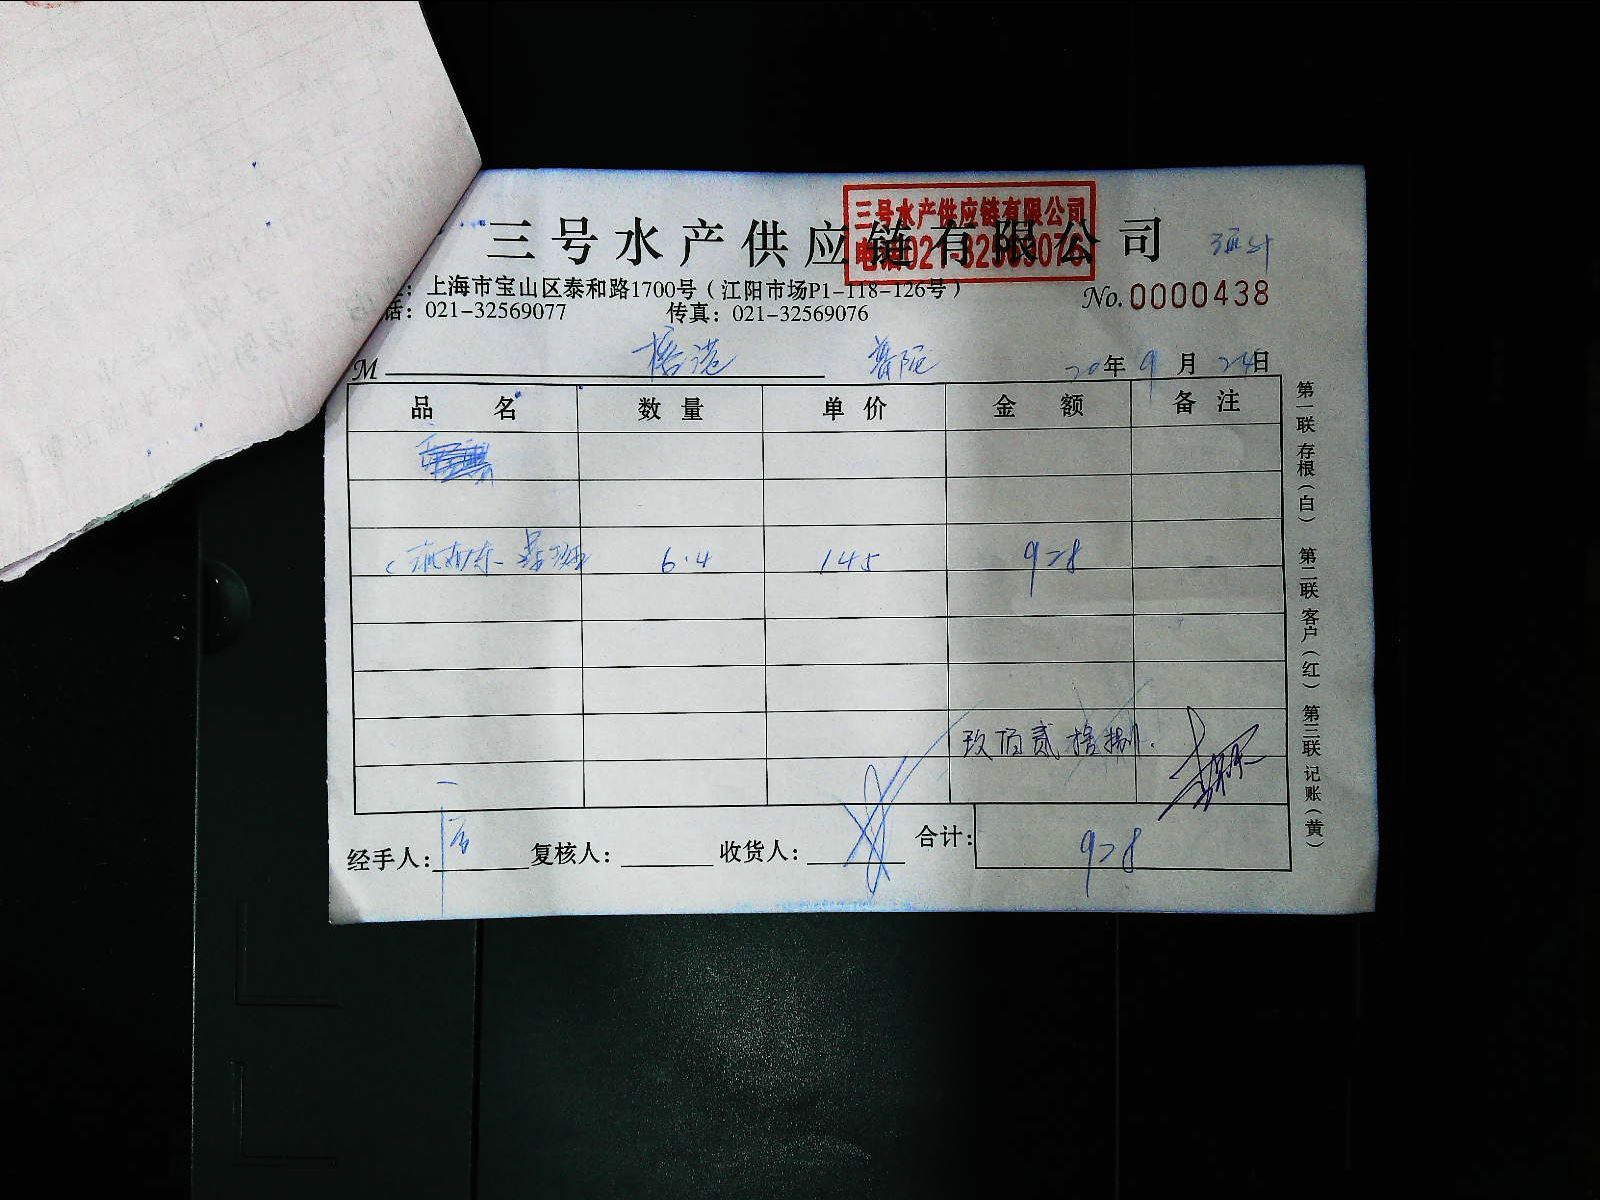 三号水产供应链有限公司
三号水产供应链有限公司
上海市宝山区泰和路1700号（江阳市场P1-118-126号）
No.0000438
话：021-32569077 传真：021-32569076
M 普陀 20年9月24日
品名 数量 单价 金额 备注
6.4 145 928
玖佰贰拾捌.
经手人： 复核人： 收货人： 合计： 928
第一联存根（白） 第二联客户（红） 第三联记账（黄）